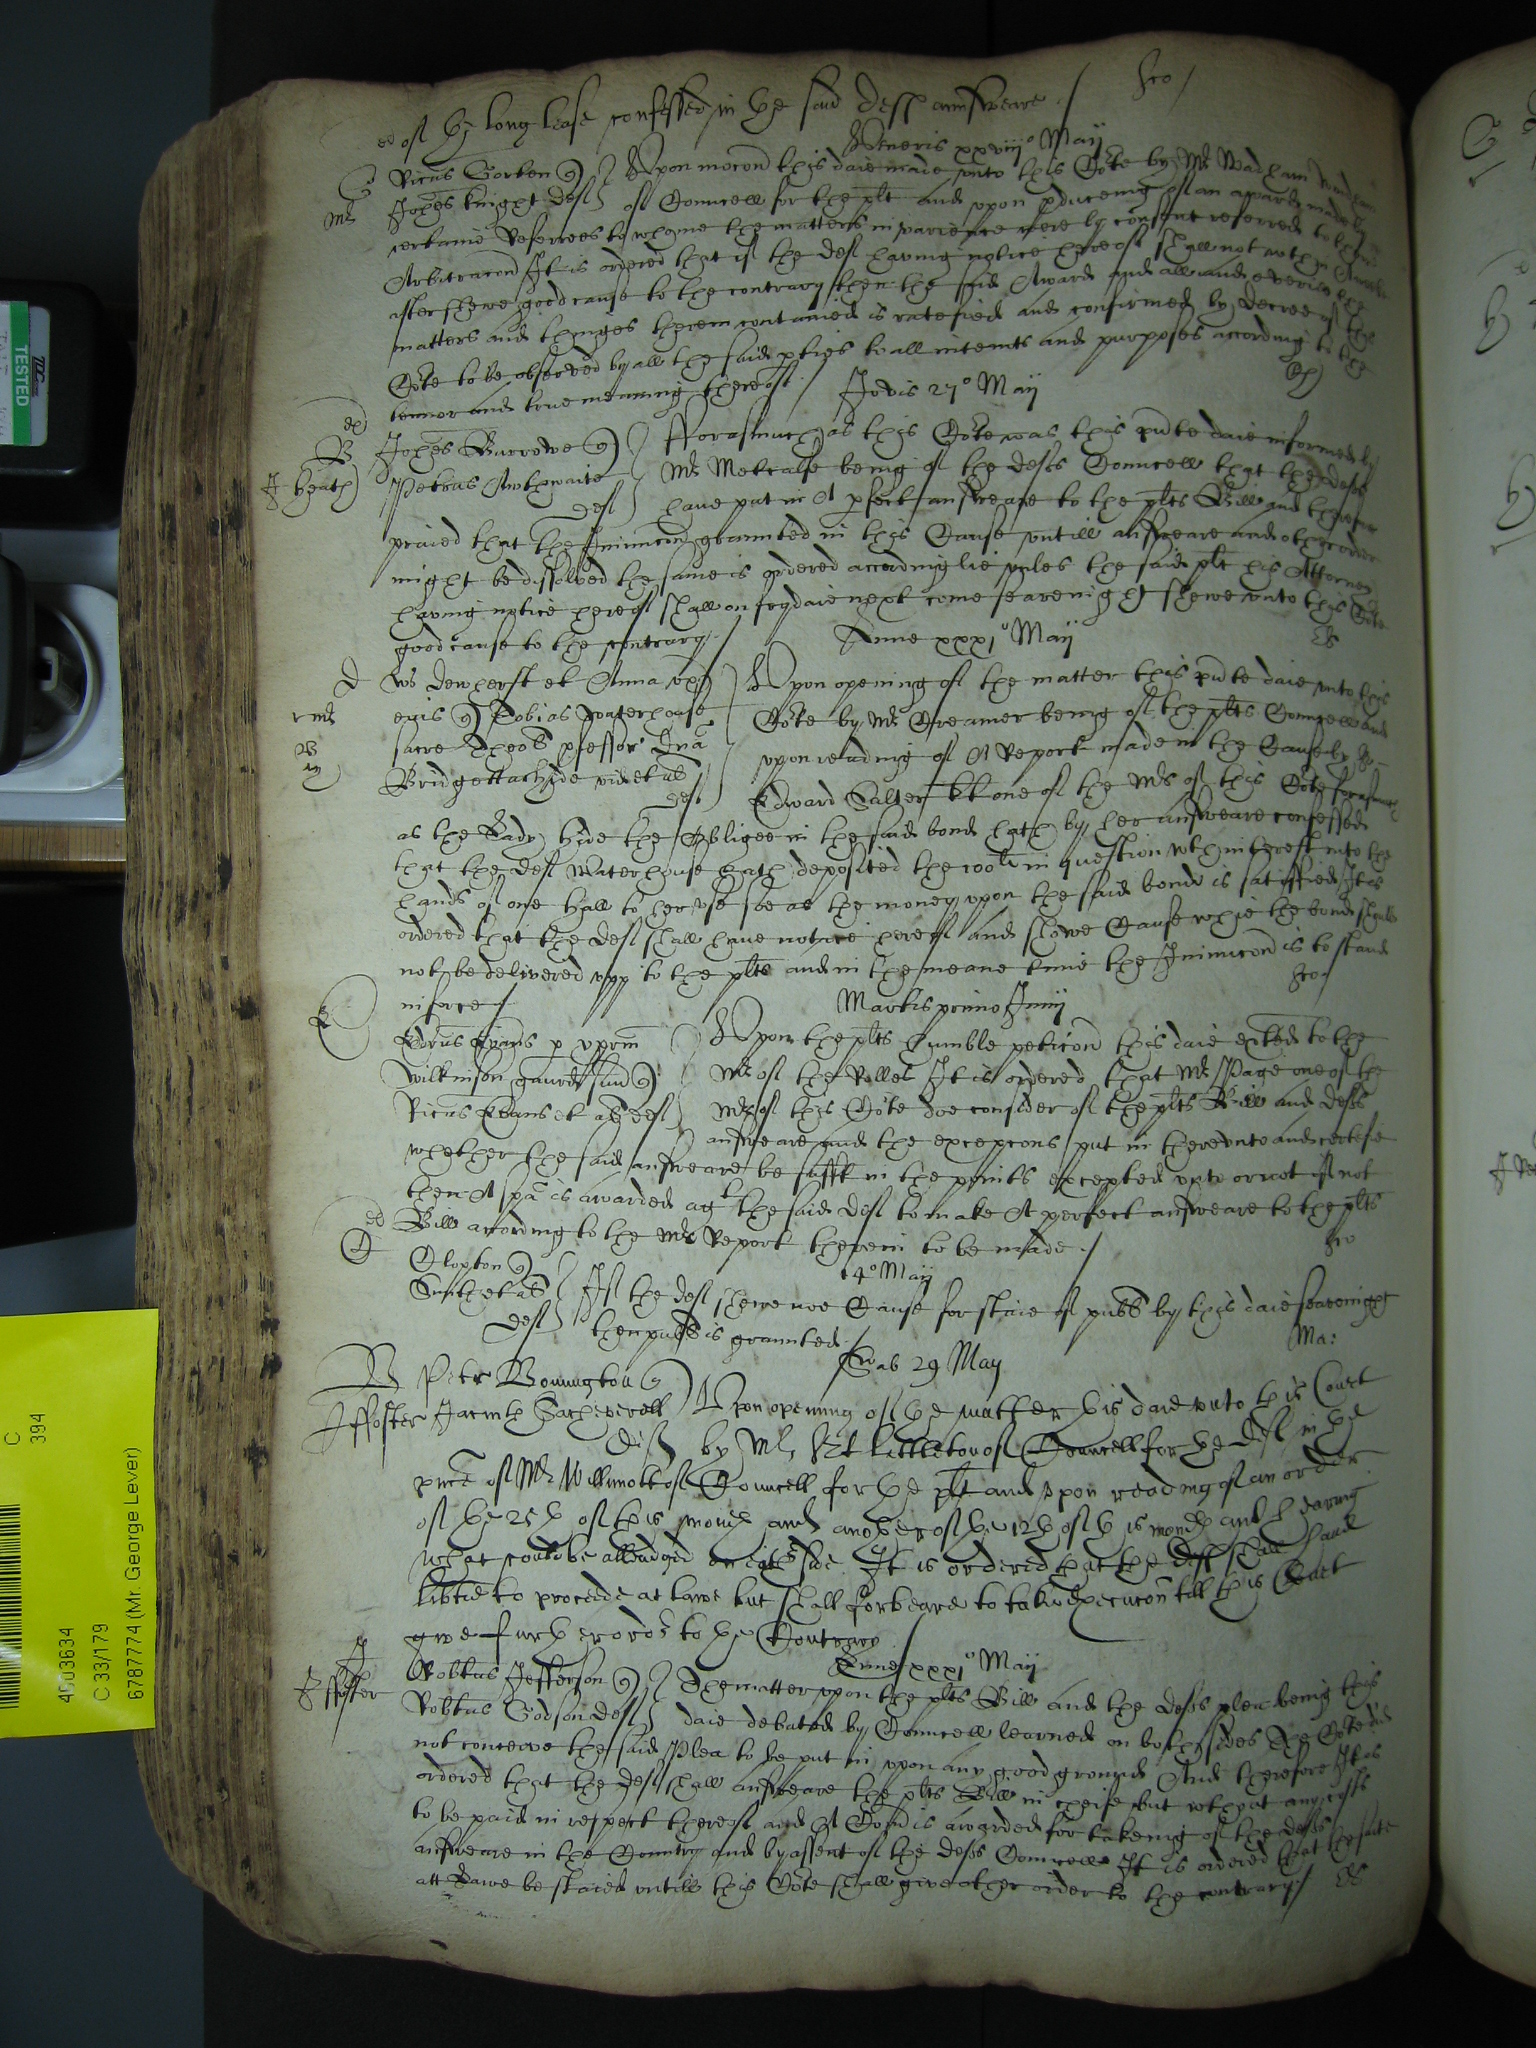 of the long lease confessed in the said deft answeare
Veneris xxviij° Maij
Ricus Gorten Upon mocon this daie made unto this Co:te by Mr Wadham
Johes knight deft of Councell for the plt and upon pducemg of an award made by
certaine Referrees to whome the matters in varience were by consent referred to
Arbitracon It is ordered that if the deft having notice hereof shall not wthin
after shewe good cause to the contrary then the said Award and all and everie the
matters and thinges therein contained is ratefied and confirmed by decree of this
Co:te to be observed by all the said pties to all intents and purposes according to the
tennor and true meaning thereof
Jovis 27° Maij
Johes Burrowe Fforasmuch as this Co:te was this pnte daie informed by
Petrus Mr Metcalfe being of the defts Councell that the defts
deft have put in A pfect answeare to the plts Bill and therefore
praied that the Iniunccon graunted in this Cause untill answeare and other order
might be dissolved the same is ordered accordinglie unles the said plt his Attorney
having notice hereof shall on frydaie next come seavenight shewe unto this Co:te
good cause to the contrary
Lune xxxi° Maij
Ws Dewherst et Anna ux Upon opening of the matter this pnte daie unto this
eius Tobias Waterhouse Co:te by Mr Creamer being of the plts Councell and
sacre Theol pfessor Dna upon reading of A Report made in the Cause by Sr
Bridgetta hide vid et al
deft Edward Salter kt one of the Mrs of this Co:te forasmuch
as the Lady hide the Obligee in the said bond hath by her answeare confessed
that the deft Waterhouse hath deposited the 100li in question wth interest into the
hands of one Hall to her use soe as the money upon the said bond is satisfied It is
ordered that the deft shall have notice hereof and shewe Cause whie the bond should
not be delivered upp to the plts and in the meane time the Iniunccon is to stand
in force
Martis primo Junij
Edrus Evans p Upon the plts humble peticon this daie exted to the
Wilkinson gaurd suu Mr of the Rolles It is ordered that Mr Page one of the
Ricus Evans et al deft Mrs of this Co:te doe consider of the plts Bill and defts
answeare and the excepcons put in thereunto and certefie
whether the said answeare be sufft in the points excepted unto or not if not
then A spa is awarded agt the said deft to make A perfect answeare to the plts
Bill according to the Mrs Report therein to be made
14° Maij
Clopton
Smith et al If the deft shewe noe Cause for staie of publ by this daie seavenight
deft then publ is graunted
Ma:
Sab 29 May
Peter Bonington
J ffoster Jacinth Sacheverell Upon opening of the matter this daie unto this Court
deft by Mr Littleton of Councell for the deft in the
pnce of Mr Willimott of Councell for the plt and upon reading of an order
of the 25th of this month and another of the 12th of this month and hearing
what could be alleadged on eithr side It is ordered that the deft shall have
libtie to proceede at lawe but shall forbeare to take execucon till this Court
give further order to the Contrary
Lune xxxi° Maij
J ffoster
Robtus Jefferson The matter upon the plts Bill and the defts plea being this
Robtus Godson deft daie debated by Councell learned on both sides The Co:te did
not conceive the said Plea to be put in upon any good ground And therefore It is
ordered that the deft shall answeare the plts Bill in cheife but wthout any costs
to be paid in respect thereof and A Com is awarded for takeing of the defts
answeare in the Country and by assent of the defts Councell It is ordered that the suite
att Lawe be staied untill this Co:te shall give other order to the contrary
TESTED
C
394
4503634
C 33/179
6787774 (Mr. George Lever)